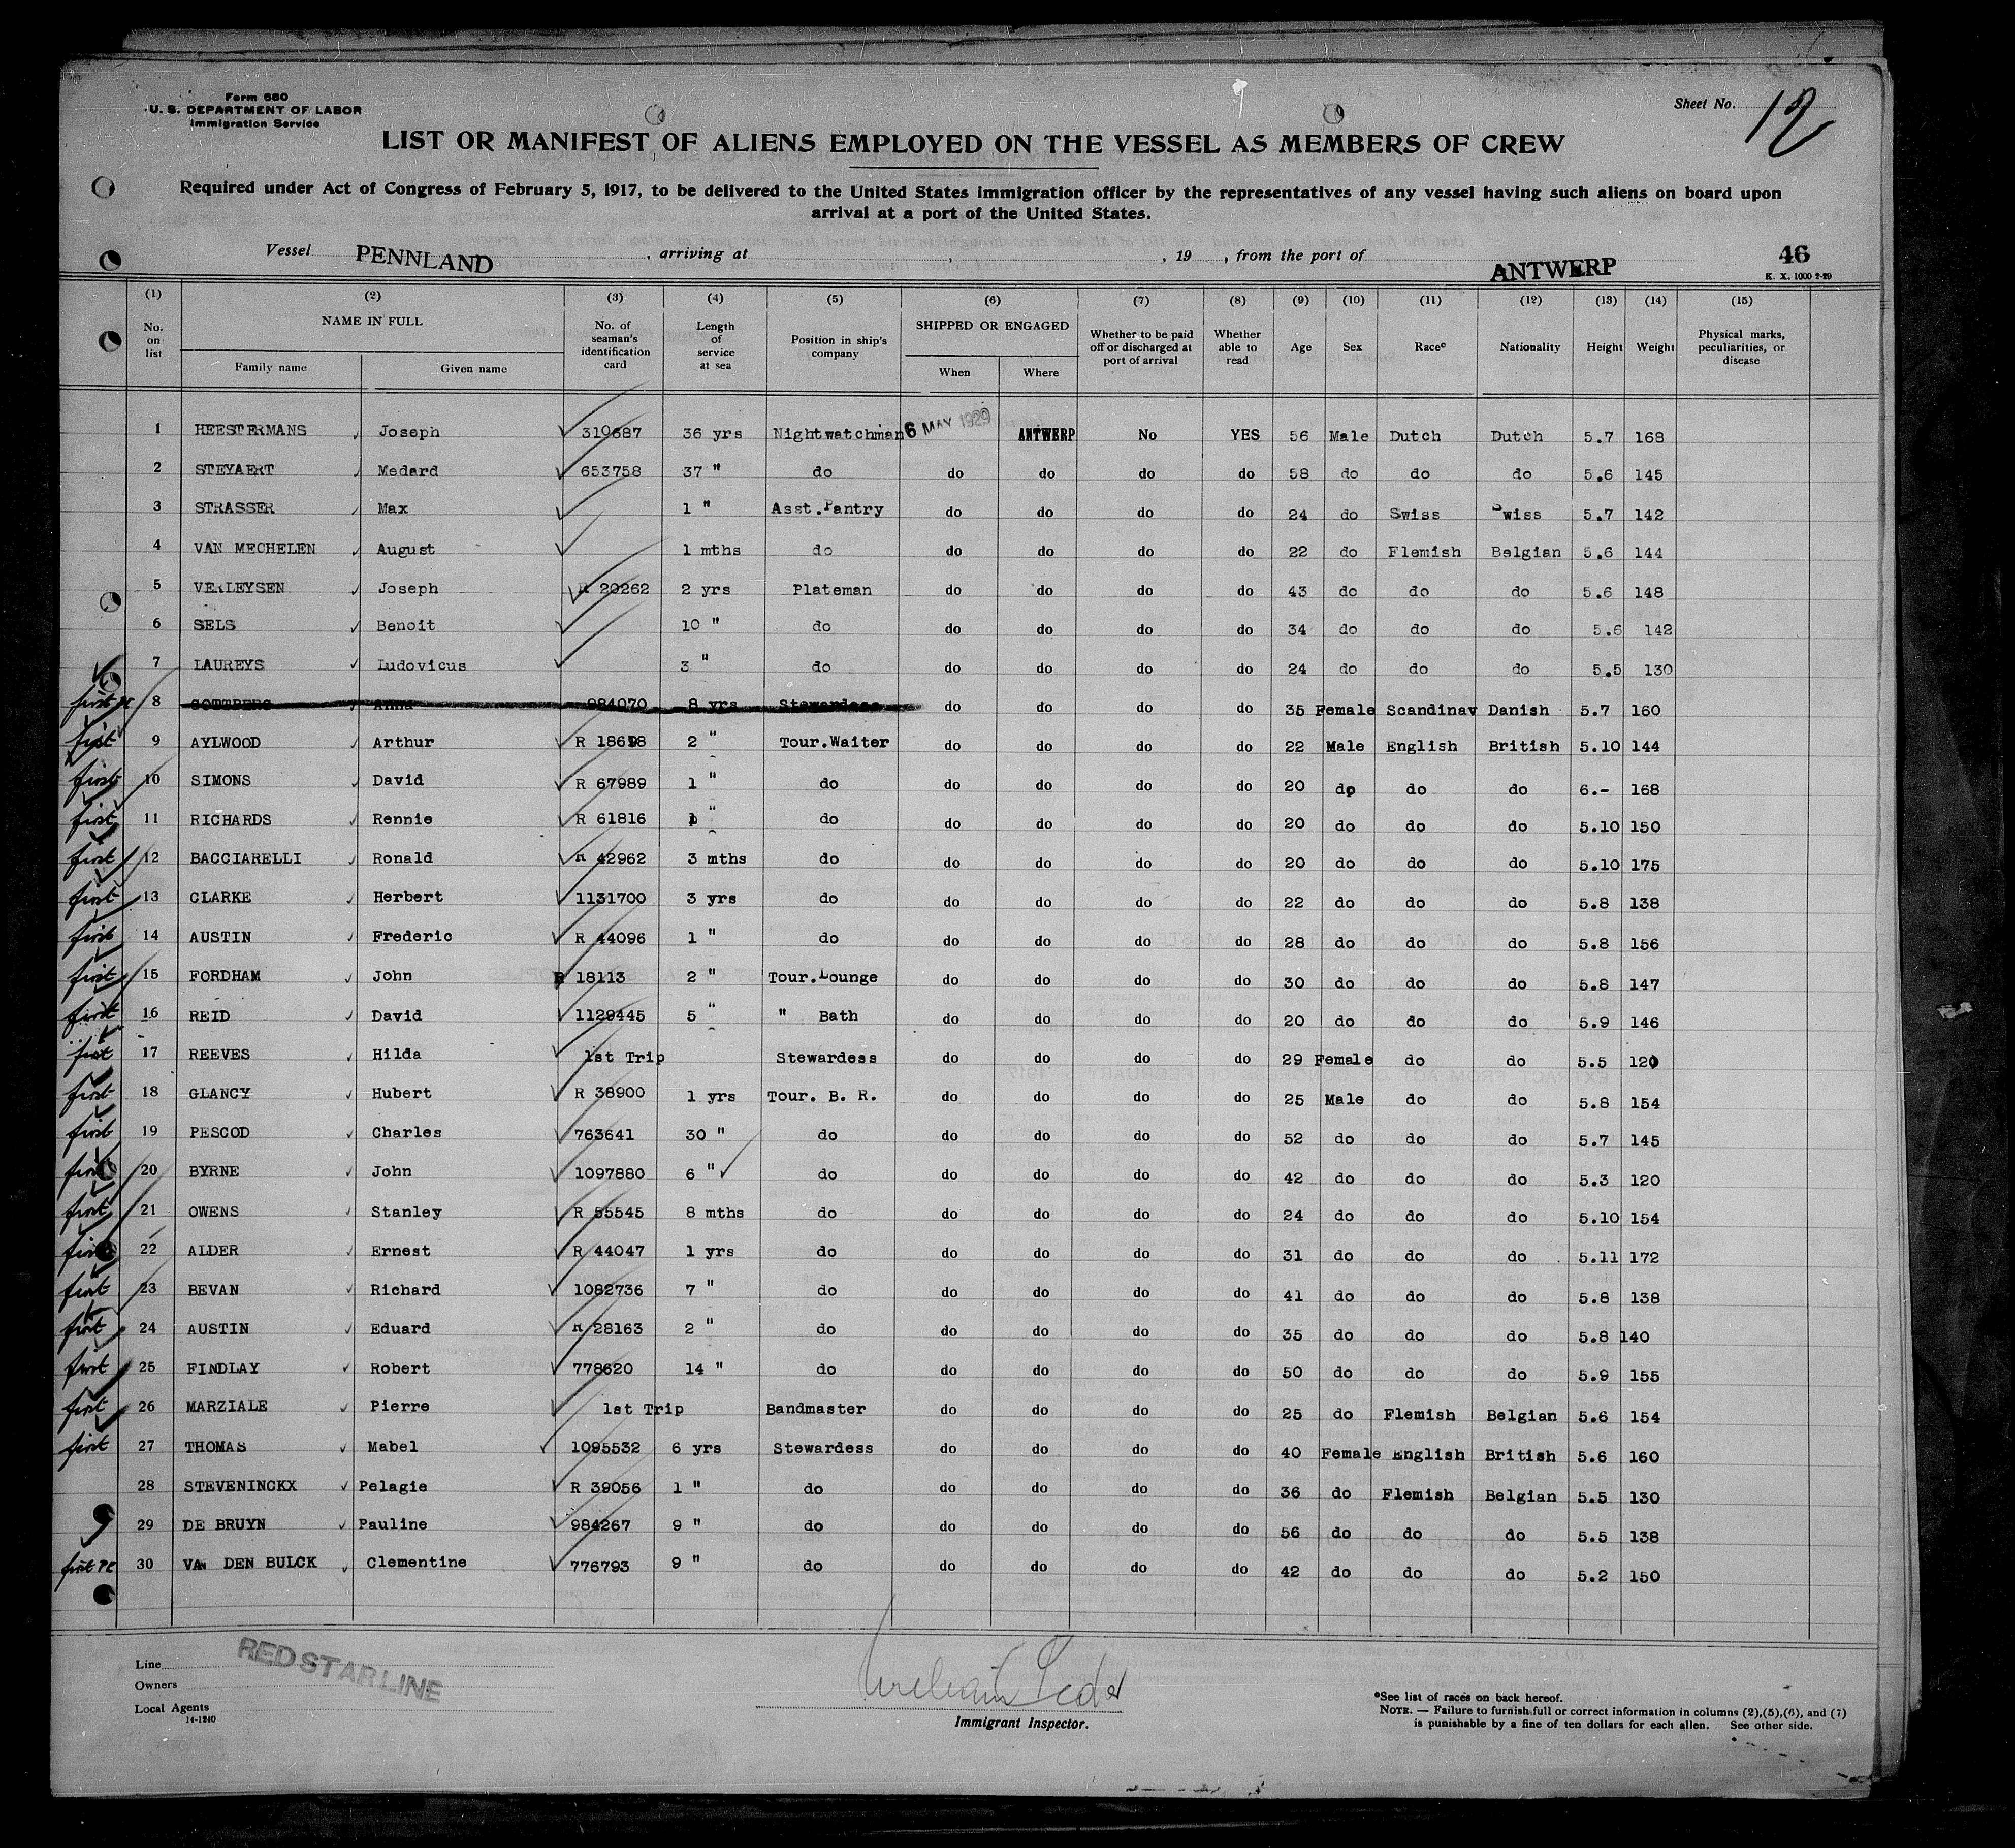 Form 680
U. S. DEPARTMENT OF LABOR
Immigration Service
Sheet No. 12
LIST OR MANIFEST OF ALIENS EMPLOYED ON THE VESSEL AS MEMBERS OF CREW
Required under Act of Congress of February 5, 1917, to be delivered to the United States immigration officer by the representatives of any vessel having such aliens on board upon
arrival at a port of the United States.
Vessel PENNLAND, arriving at , , 19 , from the port of ANTWERP
46
K. X. 1000 2-29
(1) (2) (3) (4) (5) (6) (7) (8) (9) (10) (11) (12) (13) (14) (15)
No. on list NAME IN FULL Family name Given name No. of seaman's identification card Length of service at sea Position in ship's company SHIPPED OR ENGAGED When Where Whether to be paid off or discharged at port of arrival Whether able to read Age Sex Race* Nationality Height Weight Physical marks, peculiarities, or disease
1 HEESTERMANS Joseph 310687 36 yrs Nightwatchman 6 MAY 1929 ANTWERP No YES 56 Male Dutch Dutch 5.7 168
2 STEYAERT Medard 653758 37 " do do do do do 58 do do do 5.6 145
3 STRASSER Max 1 " Asst.Pantry do do do do 24 do Swiss Swiss 5.7 142
4 VAN MECHELEN August 1 mths do do do do do 22 do Flemish Belgian 5.6 144
5 VERLEYSEN Joseph R 20262 2 yrs Plateman do do do do 43 do do do 5.6 148
6 SELS Benoit 10 " do do do do do 34 do do do 5.6 142
7 LAUREYS Ludovicus 3 " do do do do do 24 do do do 5.5 130
first PC 8 Anna 984070 8 yrs Stewardess do do do do 35 Female Scandinav Danish 5.7 160
first 9 AYLWOOD Arthur R 18658 2 " Tour.Waiter do do do do 22 Male English British 5.10 144
first 10 SIMONS David R 67989 1 " do do do do do 20 do do do 6.- 168
first 11 RICHARDS Rennie R 61816 1 " do do do do do 20 do do do 5.10 150
first 12 BACCIARELLI Ronald R 42962 3 mths do do do do do 20 do do do 5.10 175
first 13 CLARKE Herbert 1131700 3 yrs do do do do do 22 do do do 5.8 138
first 14 AUSTIN Frederic R 44096 1 " do do do do do 28 do do do 5.8 156
first 15 FORDHAM John R 18113 2 " Tour.Lounge do do do do 30 do do do 5.8 147
first 16 REID David 1129445 5 " " Bath do do do do 20 do do do 5.9 146
first 17 REEVES Hilda 1st Trip Stewardess do do do do 29 Female do do 5.5 120
first 18 GLANCY Hubert R 38900 1 yrs Tour. B. R. do do do do 25 Male do do 5.8 154
first 19 PESCOD Charles 763641 30 " do do do do do 52 do do do 5.7 145
first 20 BYRNE John 1097880 6 " do do do do do 42 do do do 5.3 120
first 21 OWENS Stanley R 55545 8 mths do do do do do 24 do do do 5.10 154
first 22 ALDER Ernest R 44047 1 yrs do do do do do 31 do do do 5.11 172
first 23 BEVAN Richard 1082736 7 " do do do do do 41 do do do 5.8 138
first 24 AUSTIN Eduard R 28163 2 " do do do do do 35 do do do 5.8 140
first 25 FINDLAY Robert 778620 14 " do do do do do 50 do do do 5.9 155
first 26 MARZIALE Pierre 1st Trip Bandmaster do do do do 25 do Flemish Belgian 5.6 154
first 27 THOMAS Mabel 1095532 6 yrs Stewardess do do do do 40 Female English British 5.6 160
28 STEVENINCKX Pelagie R 39056 1 " do do do do do 36 do Flemish Belgian 5.5 130
29 DE BRUYN Pauline 984267 9 " do do do do do 56 do do do 5.5 138
first PC 30 VAN DEN BULCK Clementine 776793 9 " do do do do do 42 do do do 5.2 150
Line RED STAR LINE
Owners
Local Agents
14-1240
Immigrant Inspector.
*See list of races on back hereof.
NOTE. — Failure to furnish full or correct information in columns (2),(5),(6), and (7)
is punishable by a fine of ten dollars for each alien. See other side.